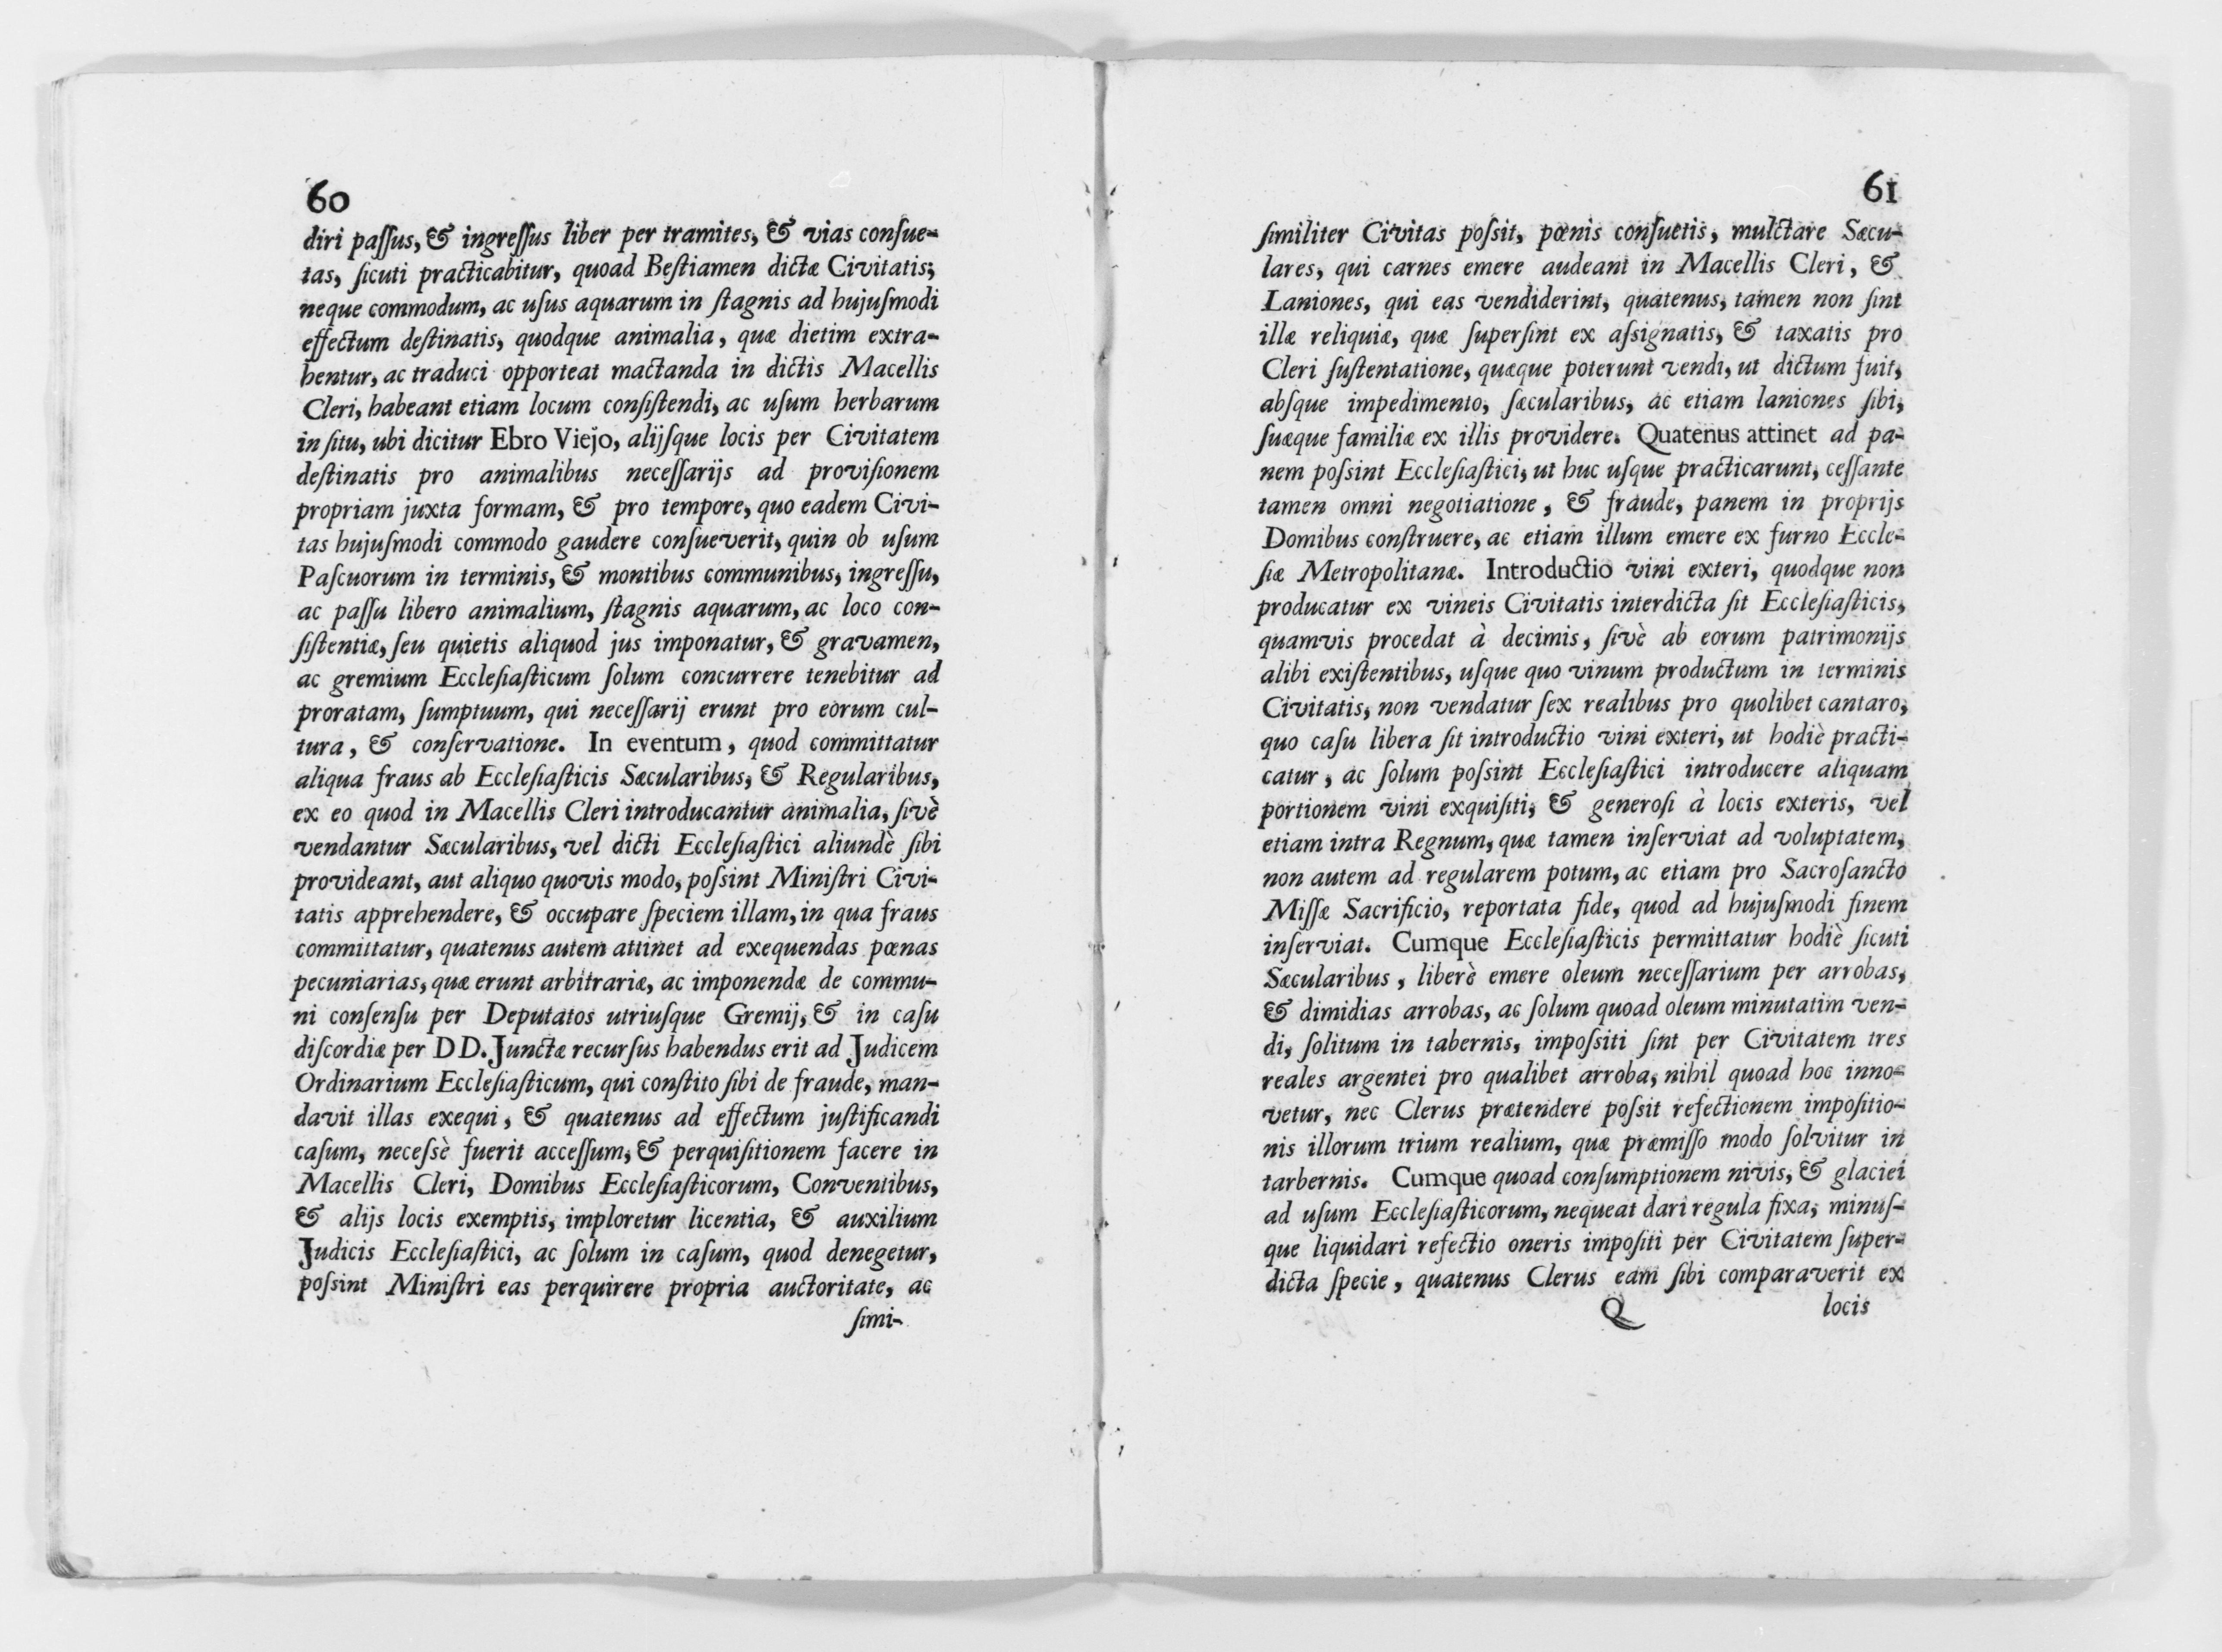 60
diri paſſus, & ingreſſus liber per tramites, & vias conſue-
tas, ſicuti practicabitur, quoad Beſtiamen dictæ Civitatis;
neque commodum, ac uſus aquarum in ſtagnis ad hujuſmodi
effectum deſtinatis, quodque animalia, quæ dietim extra-
hentur, ac traduci opporteat mactanda in dictis Macellis
Cleri, habeant etiam locum conſiſtendi, ac uſum herbarum
in ſitu, ubi dicitur Ebro Viejo, alijſque locis per Civitatem
deſtinatis pro animalibus neceſſarijs ad proviſionem
propriam juxta formam, & pro tempore, quo eadem Civi-
tas hujuſmodi commodo gaudere conſueverit, quin ob uſum
Paſcuorum in terminis, & montibus communibus, ingreſſu,
ac paſſu libero animalium, ſtagnis aquarum, ac loco con-
ſiſtentiæ, ſeu quietis aliquod jus imponatur, & gravamen,
ac gremium Eccleſiaſticum ſolum concurrere tenebitur ad
proratam, ſumptuum, qui neceſſarij erunt pro eorum cul-
tura, & conſervatione. In eventum, quod committatur
aliqua fraus ab Eccleſiaſticis Sæcularibus, & Regularibus,
ex eo quod in Macellis Cleri introducantur animalia, ſivè
vendantur Sæcularibus, vel dicti Eccleſiaſtici aliundè ſibi
provideant, aut aliquo quovis modo, poſsint Miniſtri Civi-
tatis apprehendere, & occupare ſpeciem illam, in qua fraus
committatur, quatenus autem attinet ad exequendas pœnas
pecuniarias, quæ erunt arbitrariæ, ac imponendæ de commu-
ni conſenſu per Deputatos utriuſque Gremij, & in caſu
diſcordiæ per DD. Junctæ recurſus habendus erit ad Judicem
Ordinarium Eccleſiaſticum, qui conſtito ſibi de fraude, man-
davit illas exequi, & quatenus ad effectum juſtificandi
caſum, neceſsè fuerit acceſſum, & perquiſitionem facere in
Macellis Cleri, Domibus Eccleſiaſticorum, Conventibus,
& alijs locis exemptis, imploretur licentia, & auxilium
Judicis Eccleſiaſtici, ac ſolum in caſum, quod denegetur,
poſsint Miniſtri eas perquirere propria auctoritate, ac
ſimi-
61
ſimiliter Civitas poſsit, pœnis conſuetis, mulctare Sæcu-
lares, qui carnes emere audeant in Macellis Cleri, &
Laniones, qui eas vendiderint, quatenus, tamen non ſint
illæ reliquiæ, quæ ſuperſint ex aſsignatis, & taxatis pro
Cleri ſuſtentatione, quæque poterunt vendi, ut dictum fuit,
abſque impedimento, ſæcularibus, ac etiam laniones ſibi,
ſuæque familiæ ex illis providere. Quatenus attinet ad pa-
nem poſsint Eccleſiaſtici, ut huc uſque practicarunt, ceſſante
tamen omni negotiatione, & fraude, panem in proprijs
Domibus conſtruere, ac etiam illum emere ex furno Eccle-
ſiæ Metropolitanæ. Introductio vini exteri, quodque non
producatur ex vineis Civitatis interdicta ſit Eccleſiaſticis,
quamvis procedat à decimis, ſivè ab eorum patrimonijs
alibi exiſtentibus, uſque quo vinum productum in terminis
Civitatis, non vendatur ſex realibus pro quolibet cantaro,
quo caſu libera ſit introductio vini exteri, ut hodiè practi-
catur, ac ſolum poſsint Eccleſiaſtici introducere aliquam
portionem vini exquiſiti, & generoſi à locis exteris, vel
etiam intra Regnum, quæ tamen inſerviat ad voluptatem,
non autem ad regularem potum, ac etiam pro Sacroſancto
Miſſæ Sacrificio, reportata fide, quod ad hujuſmodi finem
inſerviat. Cumque Eccleſiaſticis permittatur hodiè ſicuti
Sæcularibus, liberè emere oleum neceſſarium per arrobas,
& dimidias arrobas, ac ſolum quoad oleum minutatim ven-
di, ſolitum in tabernis, impoſsiti ſint per Civitatem tres
reales argentei pro qualibet arroba, nihil quoad hoc inno-
vetur, nec Clerus prætendere poſsit refectionem impoſitio-
nis illorum trium realium, quæ præmiſſo modo ſolvitur in
tarbernis. Cumque quoad conſumptionem nivis, & glaciei
ad uſum Eccleſiaſticorum, nequeat dari regula fixa, minuſ-
que liquidari refectio oneris impoſiti per Civitatem ſuper-
dicta ſpecie, quatenus Clerus eam ſibi comparaverit ex
Q locis